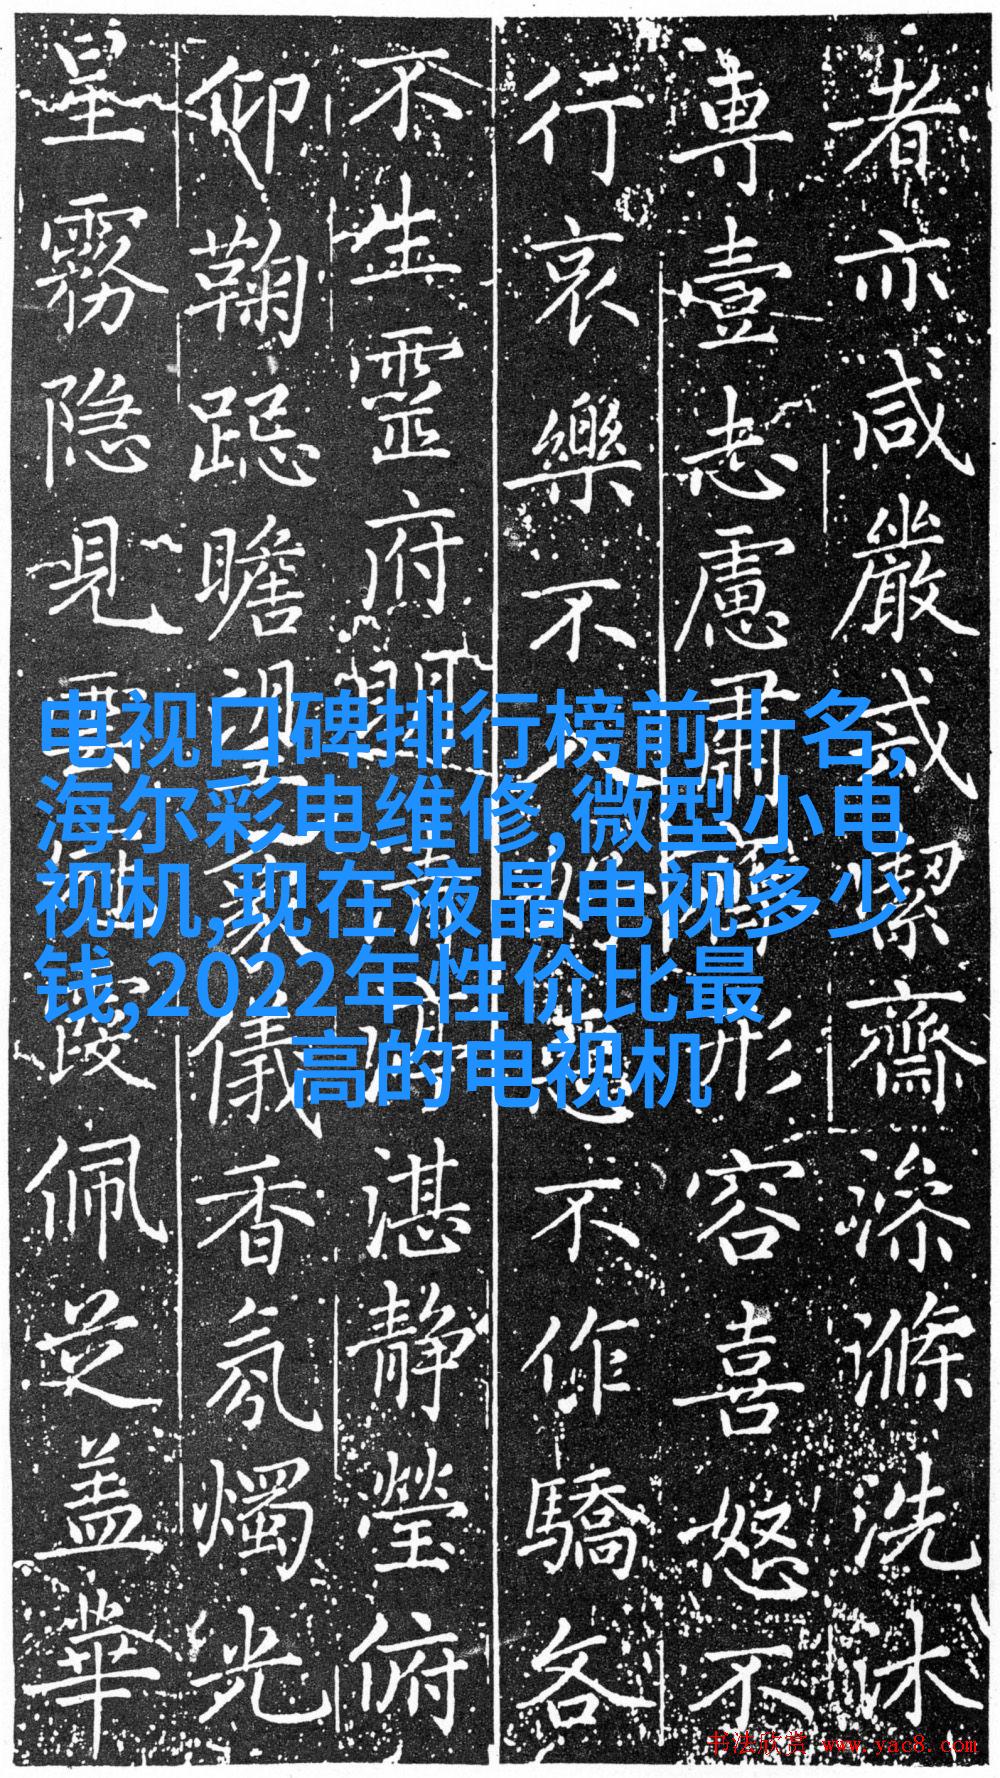 者亦咸嚴
專壹志慮肅
容喜怒不
行哀樂不
不作驕各
不生靈府
湛静瑩俯
仰鞠跽瞻
儀香氛燭光
星霧隐見
佩芝盖華
齋
滌洗沐
电视口碑排行榜前十名,
海尔彩电维修,微型小电
视机,现在液晶电视多少
钱,2022年性价比最
高的电视机
书法欣赏 www.yac8.com